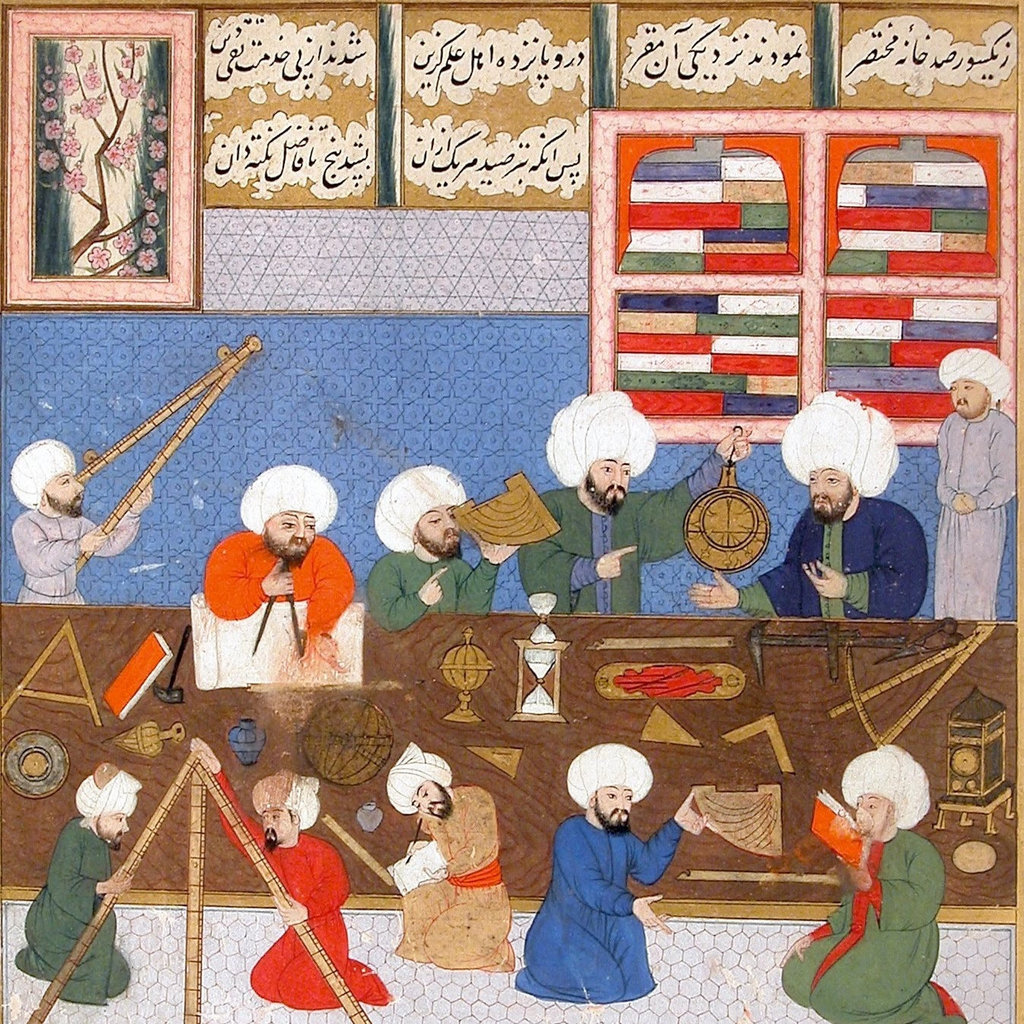 زیکسو رصد خانهٔ مختصر
نمودند نزدیکی آن مقر
درو پانزده اهل علم گزین
شدند از پی خدمت تقی دین
پس انکه بترصید هریک ازان
بشد پنج تا فاضل نکته دان